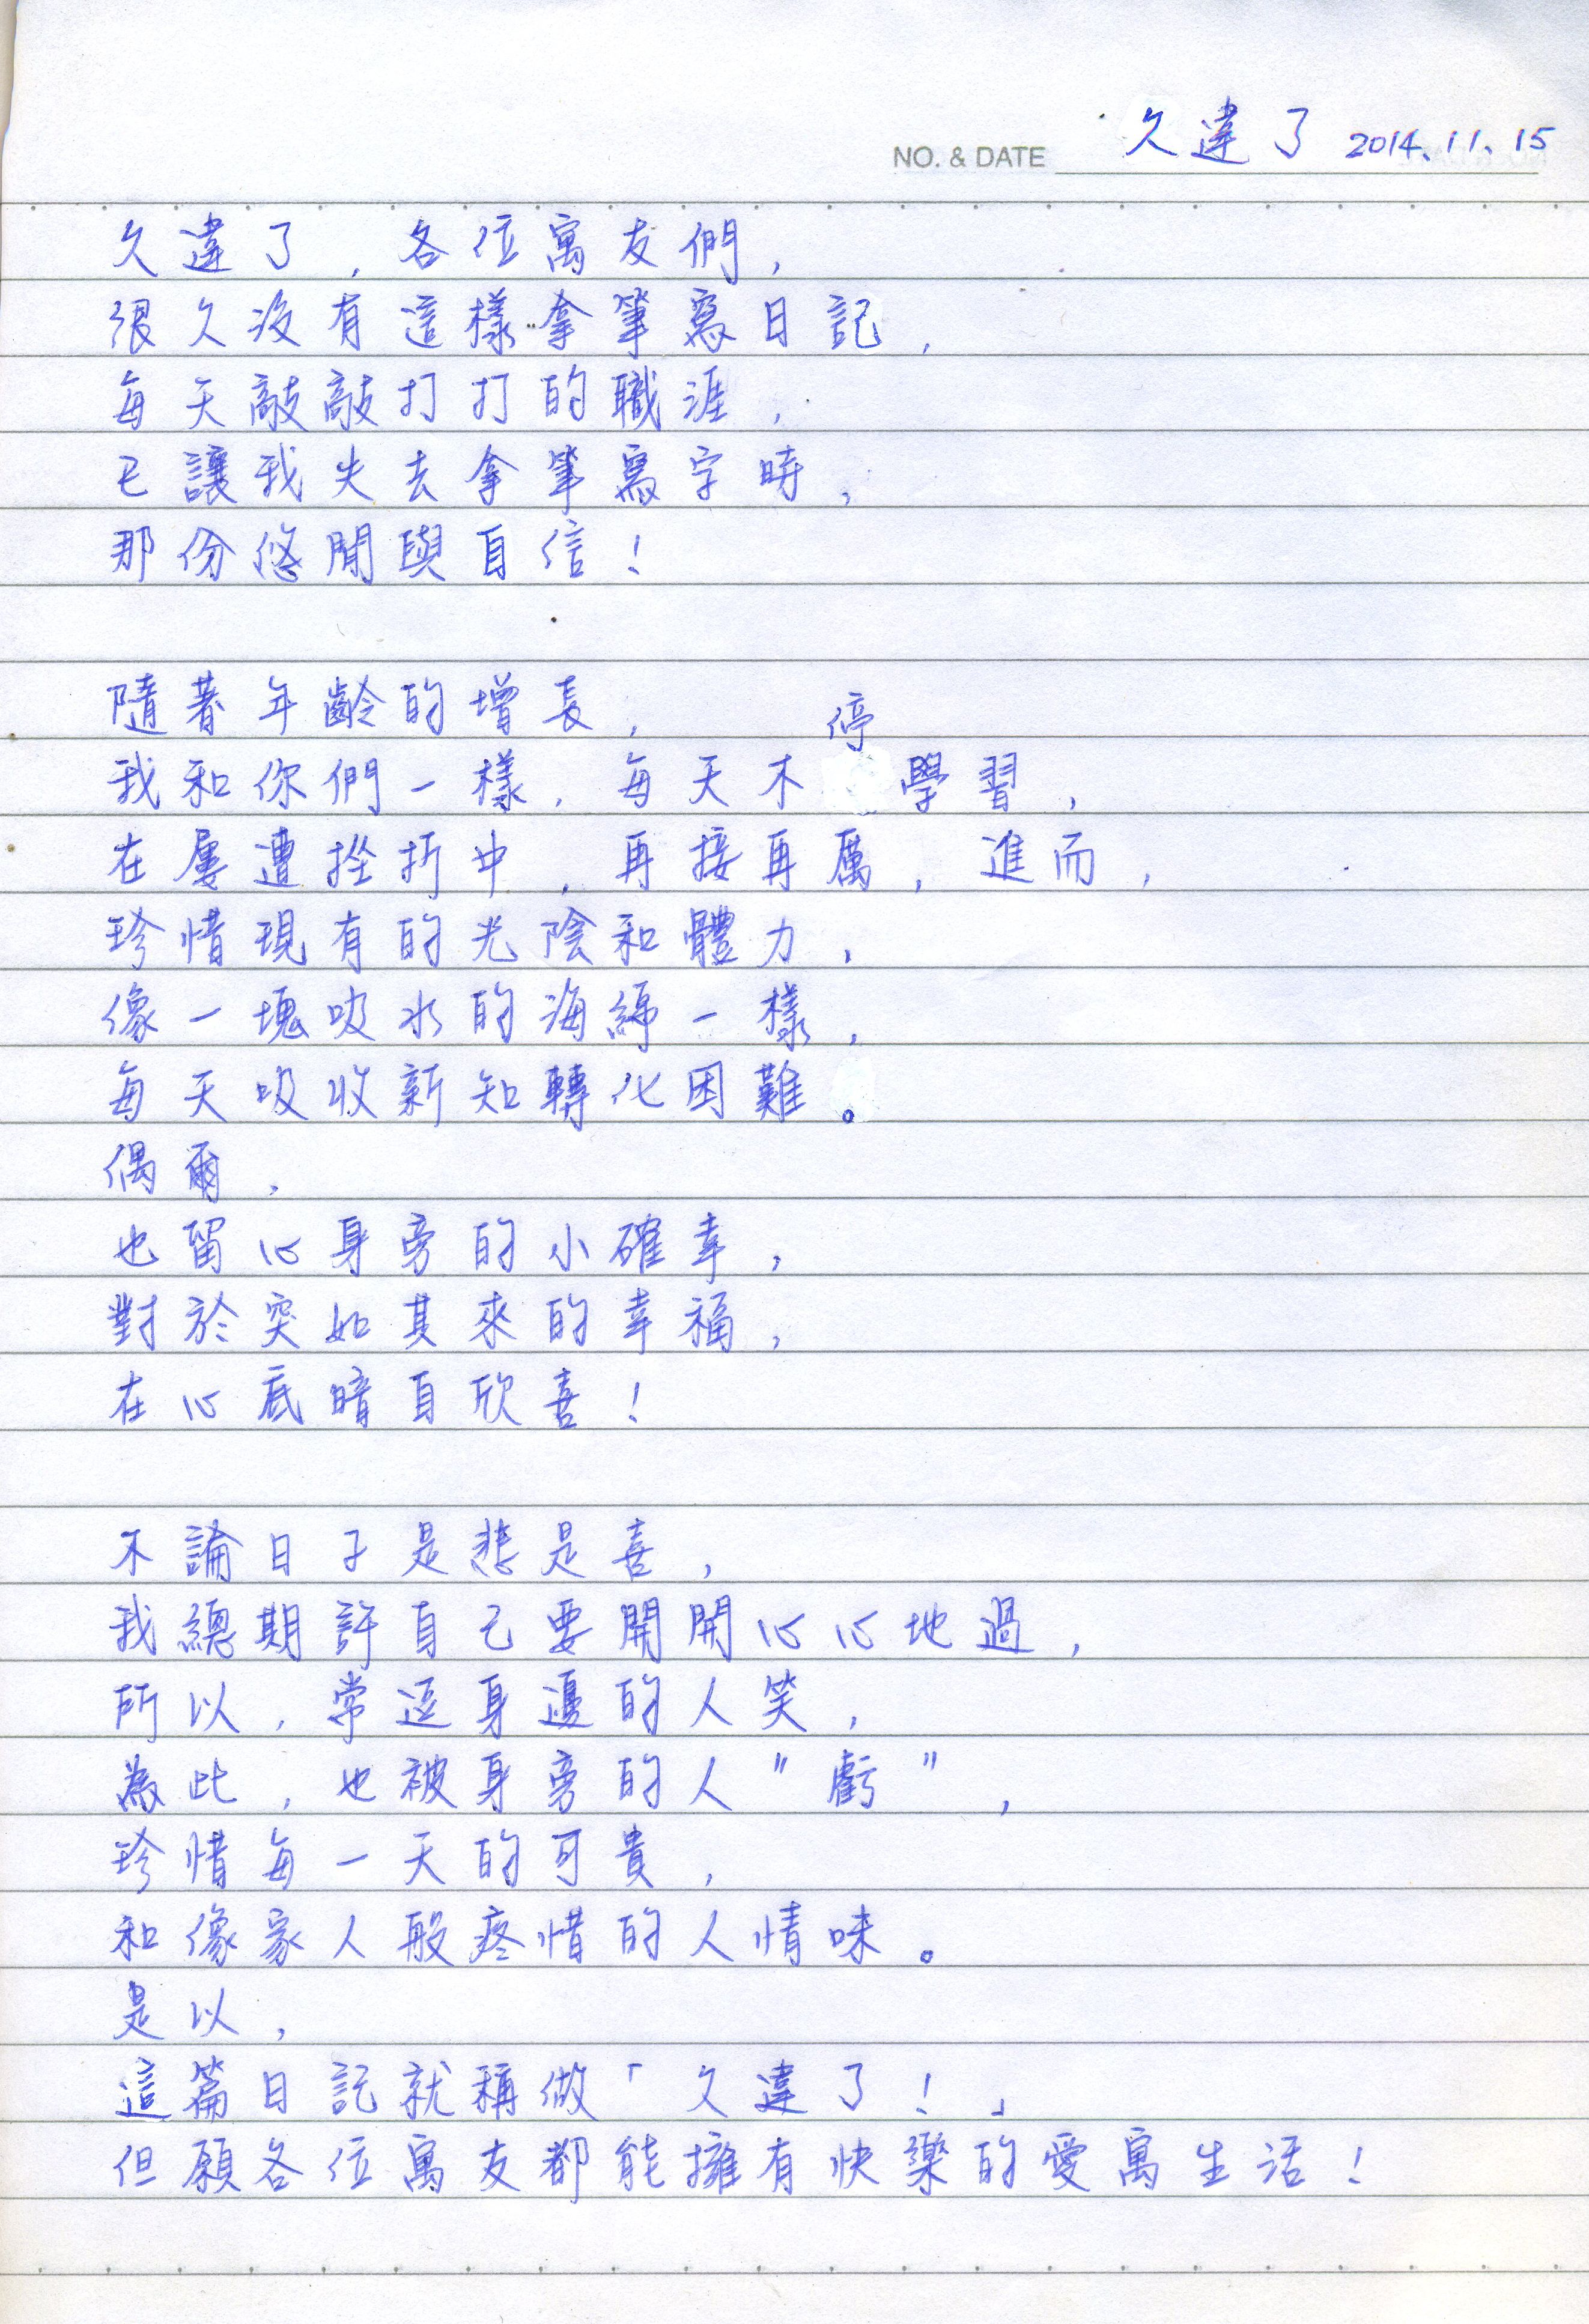 久違了 2014、11、15
NO. & DATE
久違了，各位寓友們，
很久沒有這樣拿筆寫日記，
每天敲敲打打的職涯，
已讓我失去拿筆寫字時，
那份悠閒與自信！
隨著年齡的增長，
我和你們一樣，每天不停學習，
在屢遭挫折中，再接再厲，進而，
珍惜現有的光陰和體力，
像一塊吸水的海綿一樣，
每天吸收新知轉化困難。
偶爾，
也留心身旁的小確幸，
對於突如其來的幸福，
在心底暗自欣喜！
不論日子是悲是喜，
我總期許自己要開開心心地過，
所以，常逗身邊的人笑，
為此，也被身旁的人"虧"，
珍惜每一天的可貴，
和像家人般疼惜的人情味。
是以，
這篇日記就稱做「久違了！」
但願各位寓友都能擁有快樂的愛寓生活！